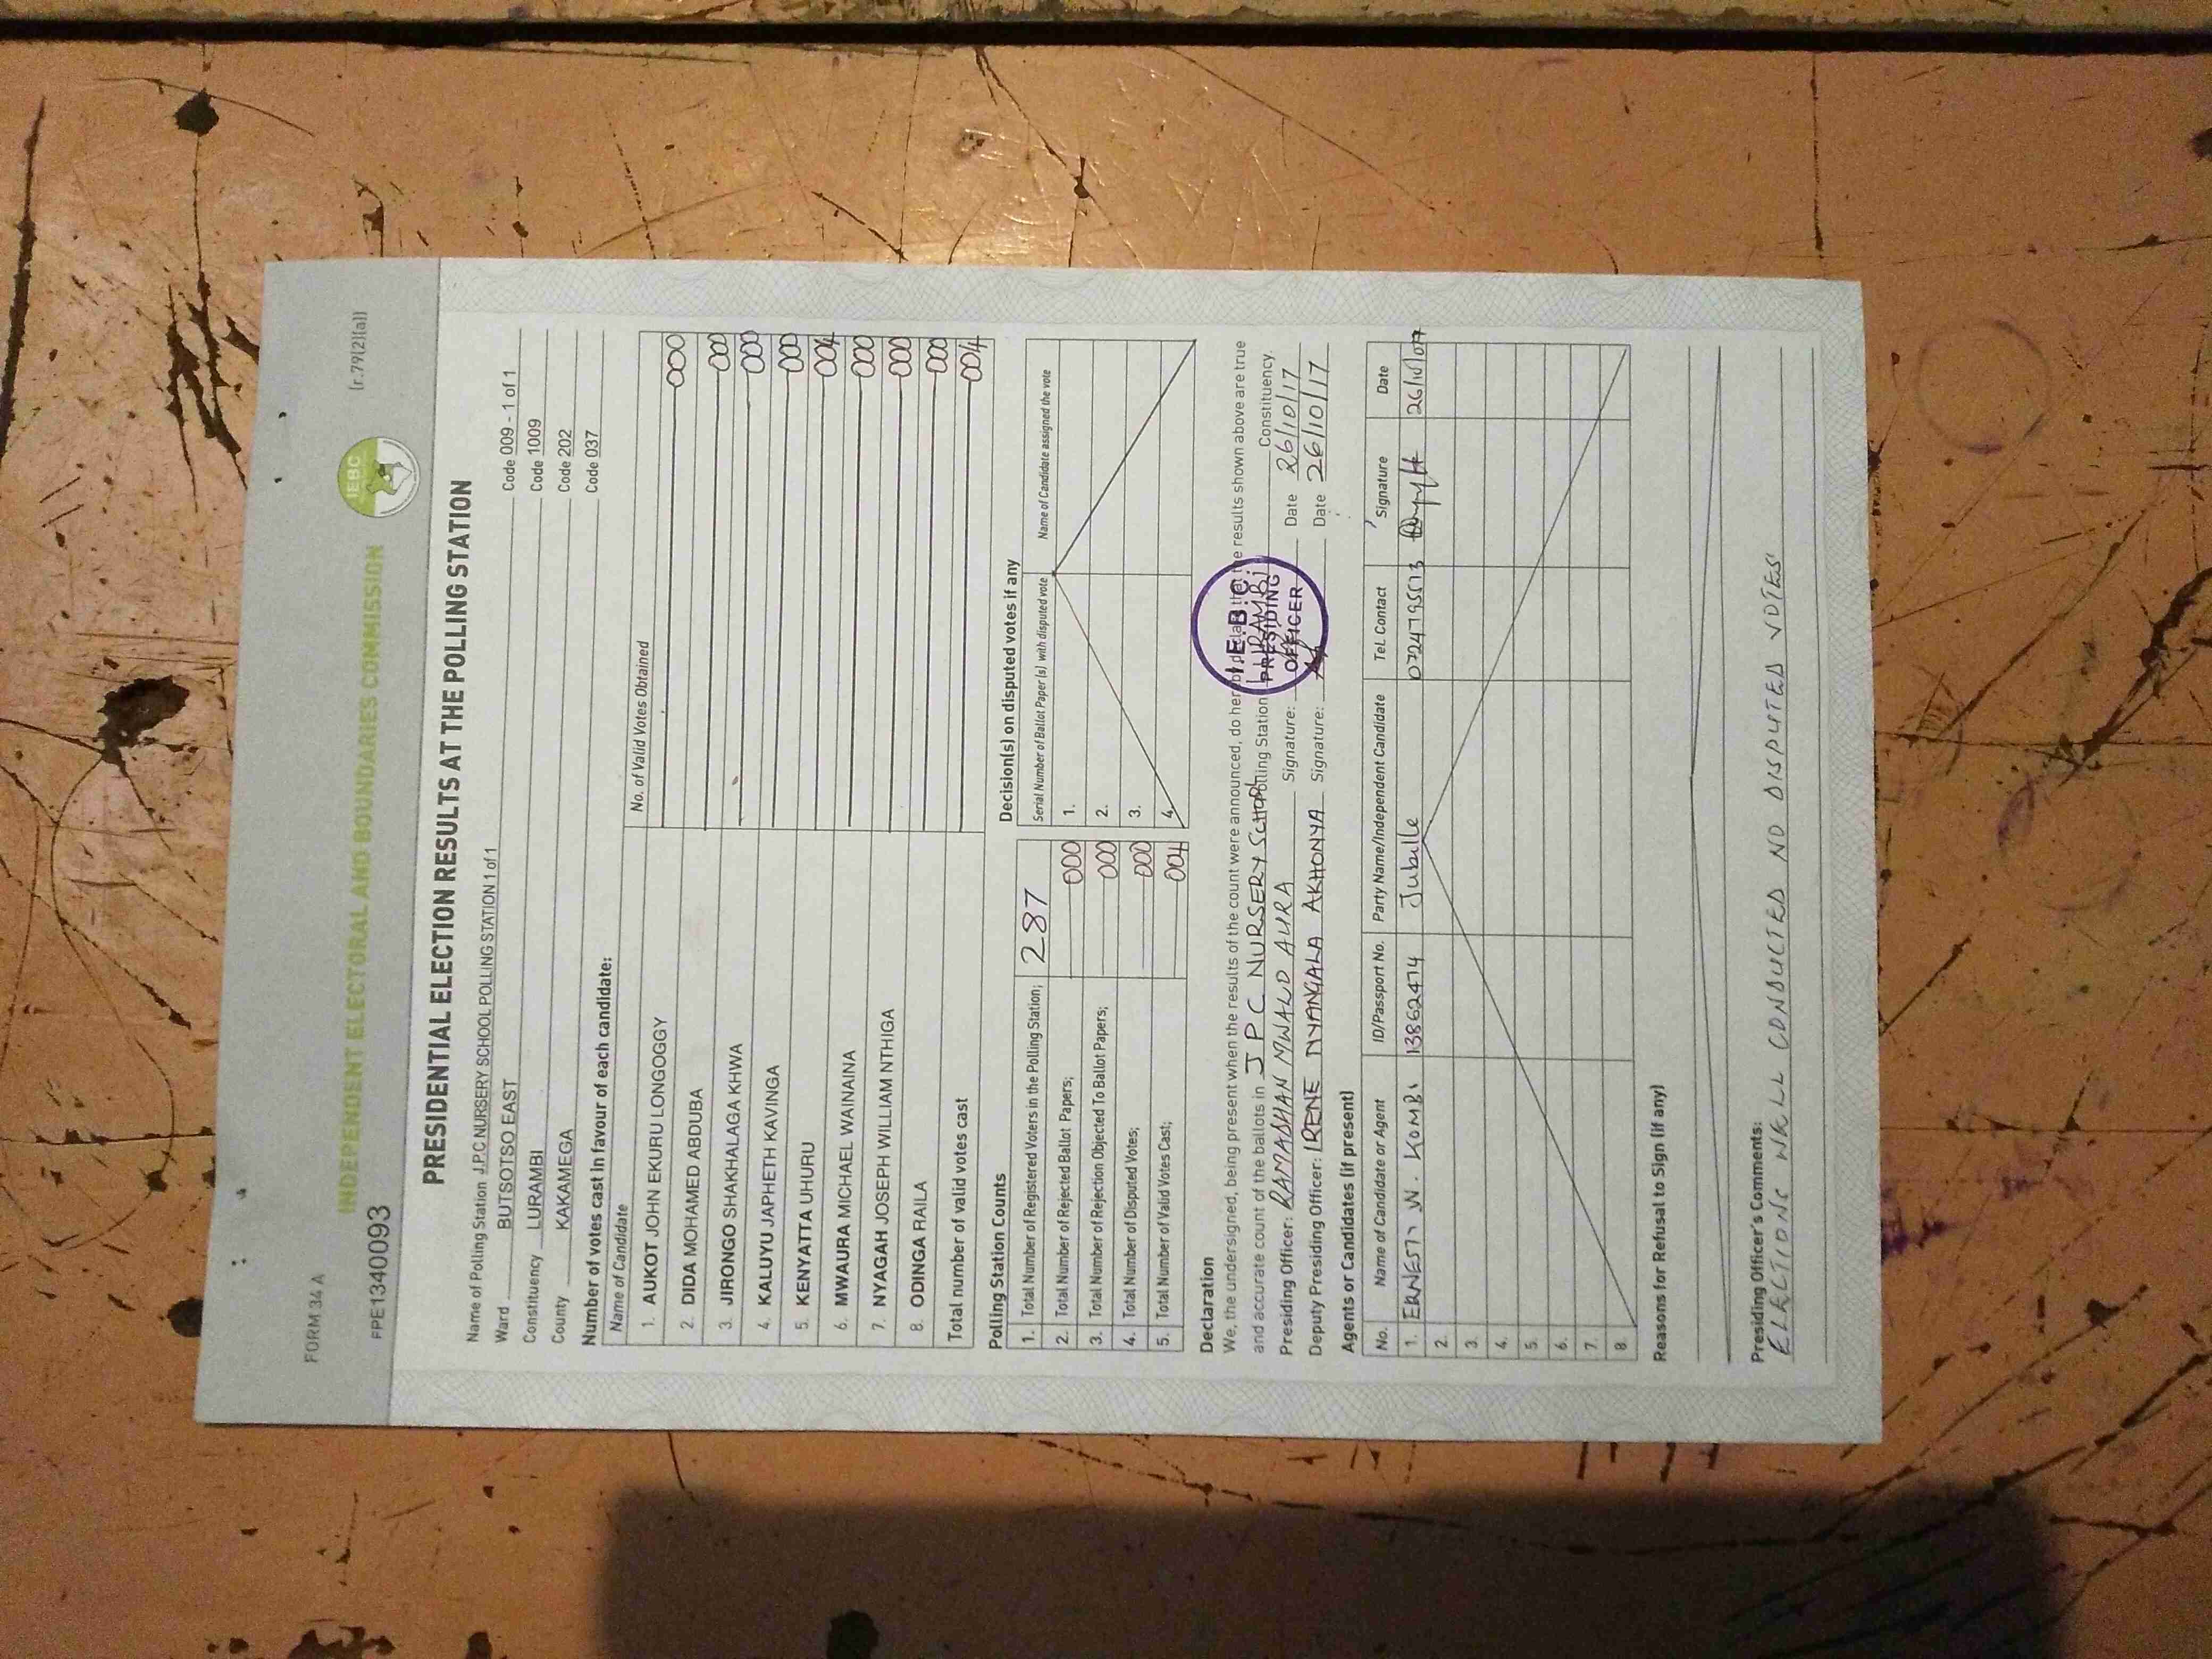 FORM 34 A
(r.79(2)(a))
INDEPENDENT ELECTORAL AND BOUNDARIES COMMISSION
IEBC
PPE1340093
PRESIDENTIAL ELECTION RESULTS AT THE POLLING STATION
Name of Polling Station J.P.C NURSERY SCHOOL POLLING STATION 1 of 1 Code 009 - 1 of 1
Ward BUTSOTSO EAST Code 1009
Constituency LURAMBI Code 202
County KAKAMEGA Code 037
Number of votes cast in favour of each candidate:
Name of Candidate No. of Valid Votes Obtained
1. AUKOT JOHN EKURU LONGOGGY 000
2. DIDA MOHAMED ABDUBA 000
3. JIRONGO SHAKHALAGA KHWA 000
4. KALUYU JAPHETH KAVINGA 000
5. KENYATTA UHURU 004
6. MWAURA MICHAEL WAINAINA 000
7. NYAGAH JOSEPH WILLIAM NTHIGA 000
8. ODINGA RAILA 000
Total number of valid votes cast 004
Polling Station Counts
1. Total Number of Registered Voters in the Polling Station; 287
2. Total Number of Rejected Ballot Papers; 000
3. Total Number of Rejection Objected To Ballot Papers; 000
4. Total Number of Disputed Votes; 000
5. Total Number of Valid Votes Cast; 004
Decision(s) on disputed votes if any
Serial Number of Ballot Paper (s) with disputed vote Name of Candidate assigned the vote
1.
2.
3.
4.
Declaration
We, the undersigned, being present when the results of the count were announced, do hereby declare that the results shown above are true
and accurate count of the ballots in J P C NURSERY SCHOOL Polling Station LURAMBI Constituency.
Presiding Officer: RAMADHAN MWALO AURA Signature: Date 26/10/17
Deputy Presiding Officer: IRENE NYANGALA AKHONYA Signature: Date 26/10/17
I.E.B.C.
PRESIDING
OFFICER
Agents or Candidates (if present)
No. Name of Candidate or Agent ID/Passport No. Party Name/Independent Candidate Tel. Contact Signature Date
1. ERNEST W. KOMBI 13862474 Jubille 0724795513 26/10/017
2.
3.
4.
5.
6.
7.
8.
Reasons for Refusal to Sign (if any)
Presiding Officer's Comments:
ELECTIONS WELL CONDUCTED NO DISPUTED VOTES